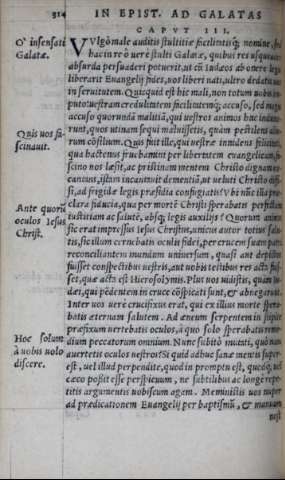 314 IN EPIST. AD GALATAS
CAPVT III.
O' insensati
Galatæ.
VVlgò male auditis stultitiæ facilitatisq; nomine,
hac in re ô uerè stulti Galatæ, quibus res usqueadeò
absurda persuaderi potuerit, ut cũ Iudæos ab onere legis
liberarit Euangelij fides, uos liberi nati, ultro dedatis uos
in seruitutem. Quicquid est hic mali, non totum uobis im-
puto: uestram credulitatem facilitatemq; accuso, sed magis
accuso quorundã malitiã, qui uestros animos huc induxe-
runt, quos utinam sequi maluissetis, quàm pestilens
rum cõsilium. Quis fuit ille, qui uestræ inuidens felicitati,
Quis uos fa-
scinauit.
qua hactenus fruebamini per libertatem euangelicam, fa-
scino uos læsit, ac pristinam mentem Christo dignam
cantans, istam incantauit dementiã, ut ueluti Christo diffi-
si, ad frigida legis præsidia confugiatis? Vbi nũc illa præ-
clara fiducia, qua per mortẽ Christi sperabatis perfectam
Ante quorũ
oculos Iesus
Christ.
iustitiam ac salutẽ, absq; legis auxilijs? Quorum animis
sic erat impressus Iesus Christus, unicus autor totius salu-
tis, sic illum cernebatis oculis fidei, per crucem suam patri
reconciliantem mundum uniuersum, quasi ant depictus
fuisset conspectibus uestris, aut uobis testibus res acta fuis-
set, quæ acta est Hierosolymis. Plus uos uidistis, quàm Iu-
dæi, qui pẽdentem in cruce cõspicati sunt, & abnegarunt.
Inter uos uerè crucifixus erat, qui ex illius morte spera-
batis æternam salutem. Ad æneum serpentem in stipite
præfixum uertebatis oculos, à quo solo sperabatis reme-
Hoc solum
à uobis uolo
discere.
dium peccatorum omnium. Nunc subitò mutati, quò nam
auertetis oculos uestros? Si quid adhuc sanæ mentis super-
est, uel illud perpendite, quod in promptu est, quodq; uel
cæco possit esse perspicuum, ne subtilibus ac longè repe-
titis argumentis uobiscum agam. Meministis uos nuper
ad prædicationem Euangelij per baptismũ, & manuum
nost